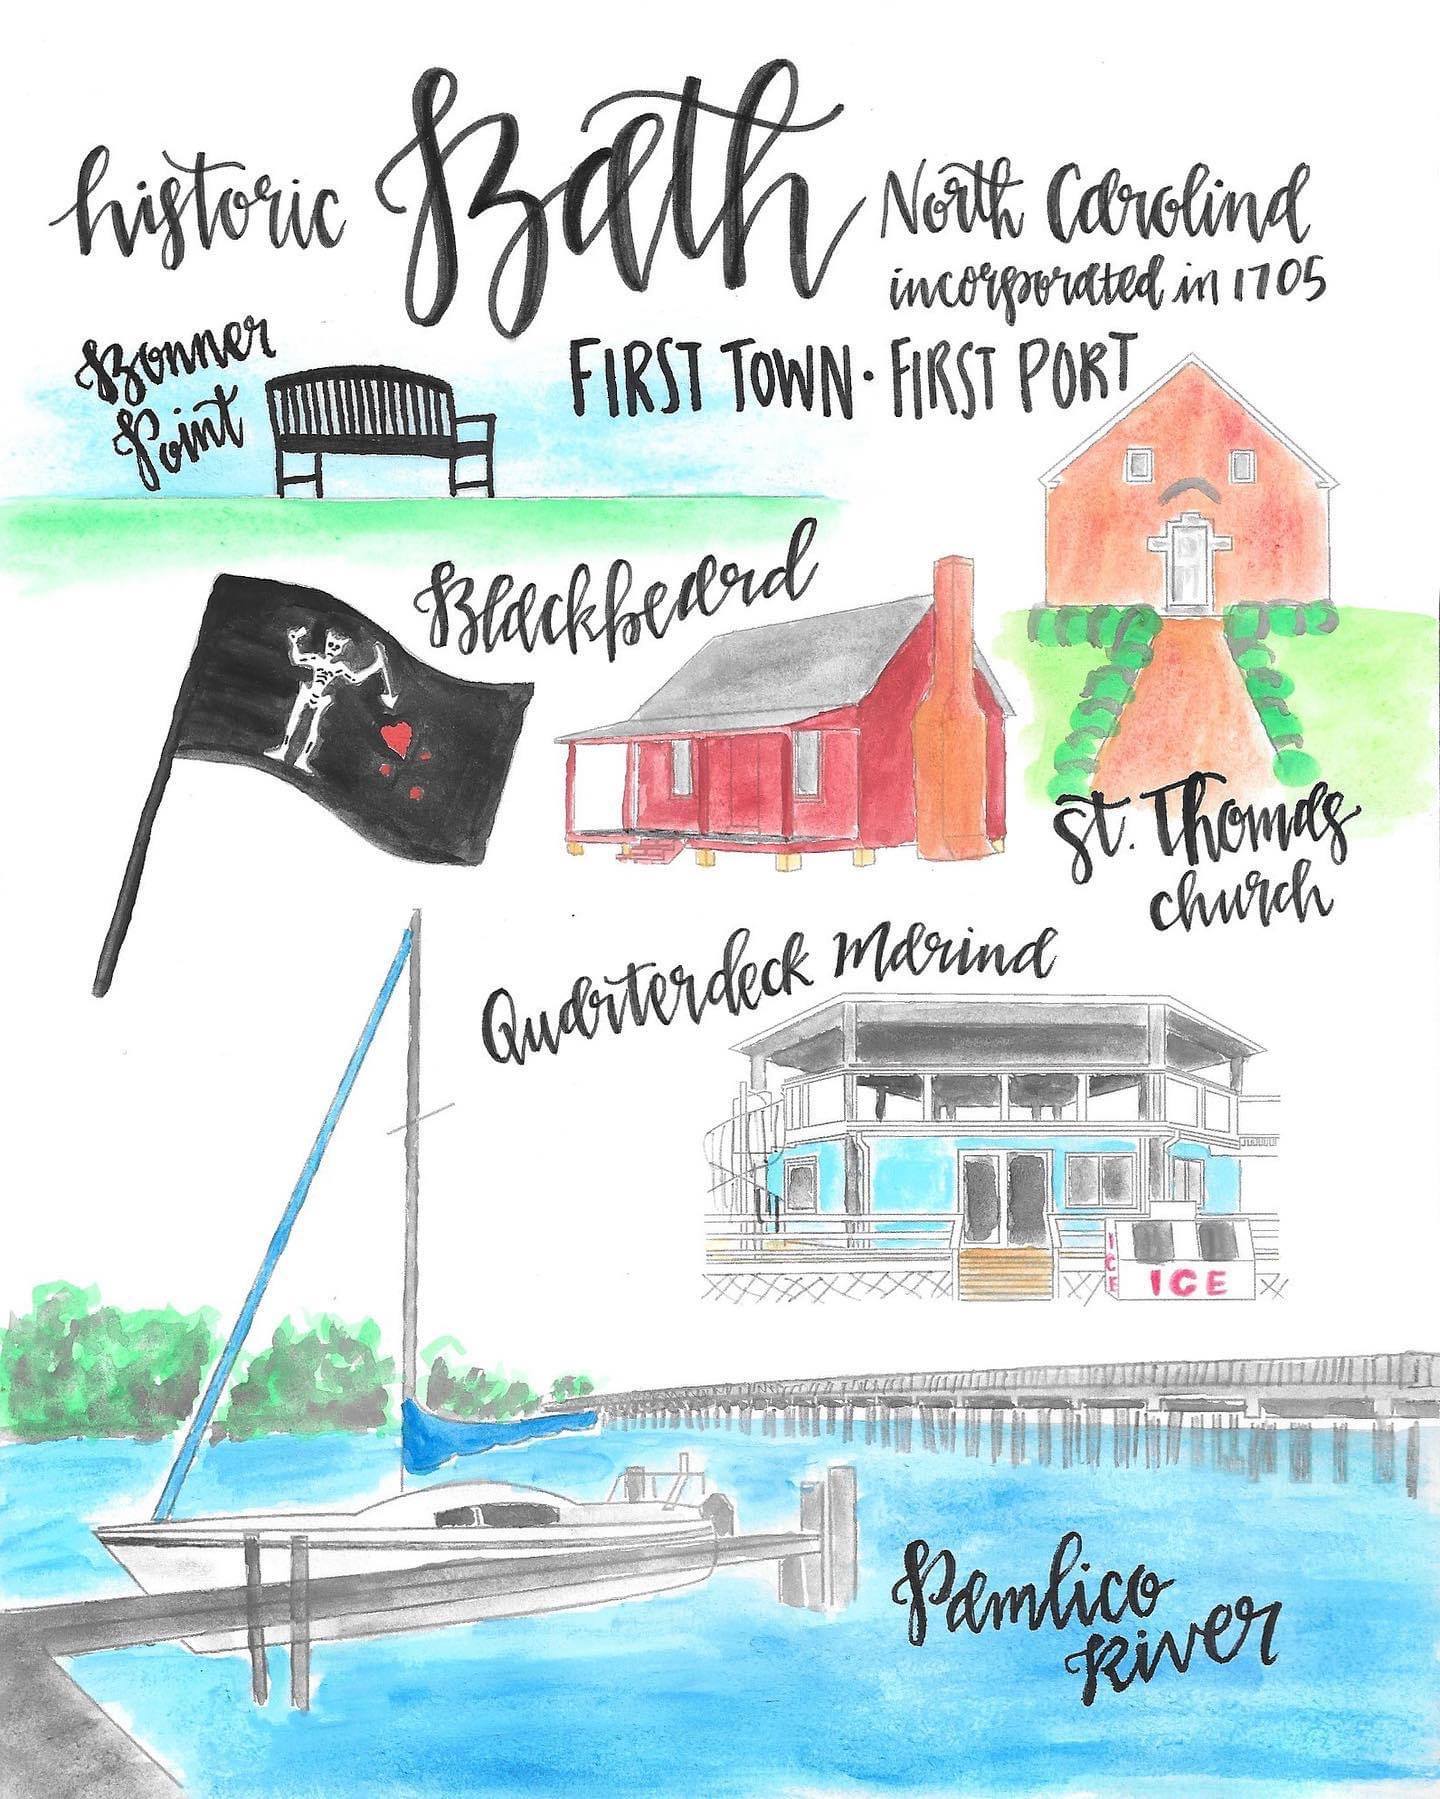 historic Bath North Carolina
incorporated in 1705
FIRST TOWN · FIRST PORT
Bonner
Point
Blackbeard
St. Thomas
church
Quarterdeck Marina
ICE
ICE
Pamlico
River